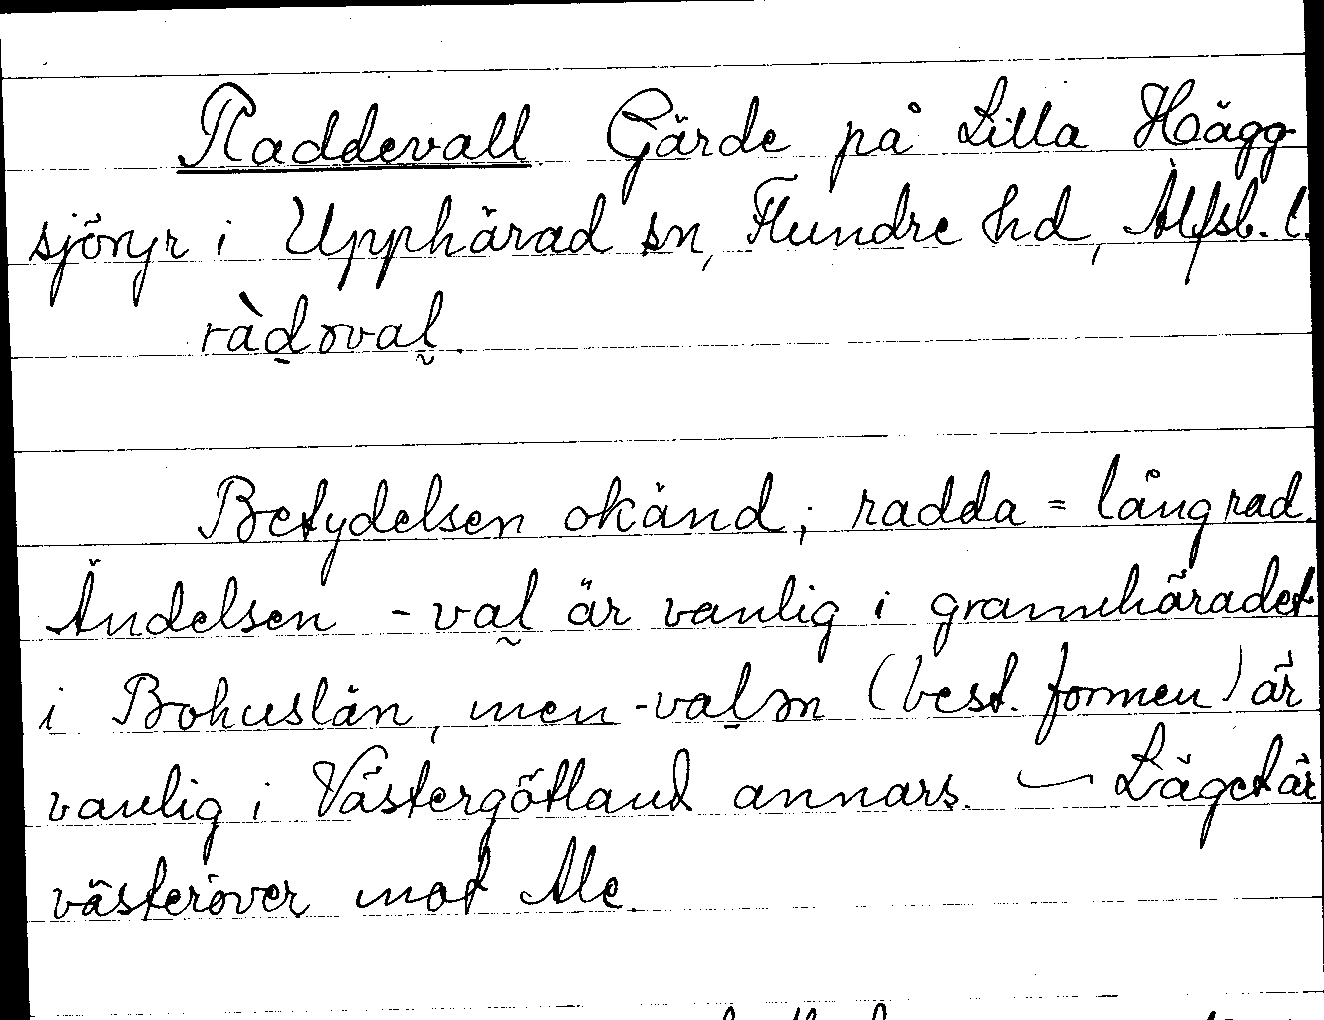 Raddevall Gärde på Lilla Hägg-
sjöryr i Upphärad sn, Flundre hd, Älfsb. l.
ràd̠ɷval̮.
Betydelsen okänd; radda = lång rad.
Ändelsen -val̮ är vanlig i grannhäradet
i Bohuslän, men -val̠ɷn (best. formen) är
vanlig i Västergötland annars. — Läget är
västeröver mot Ale.